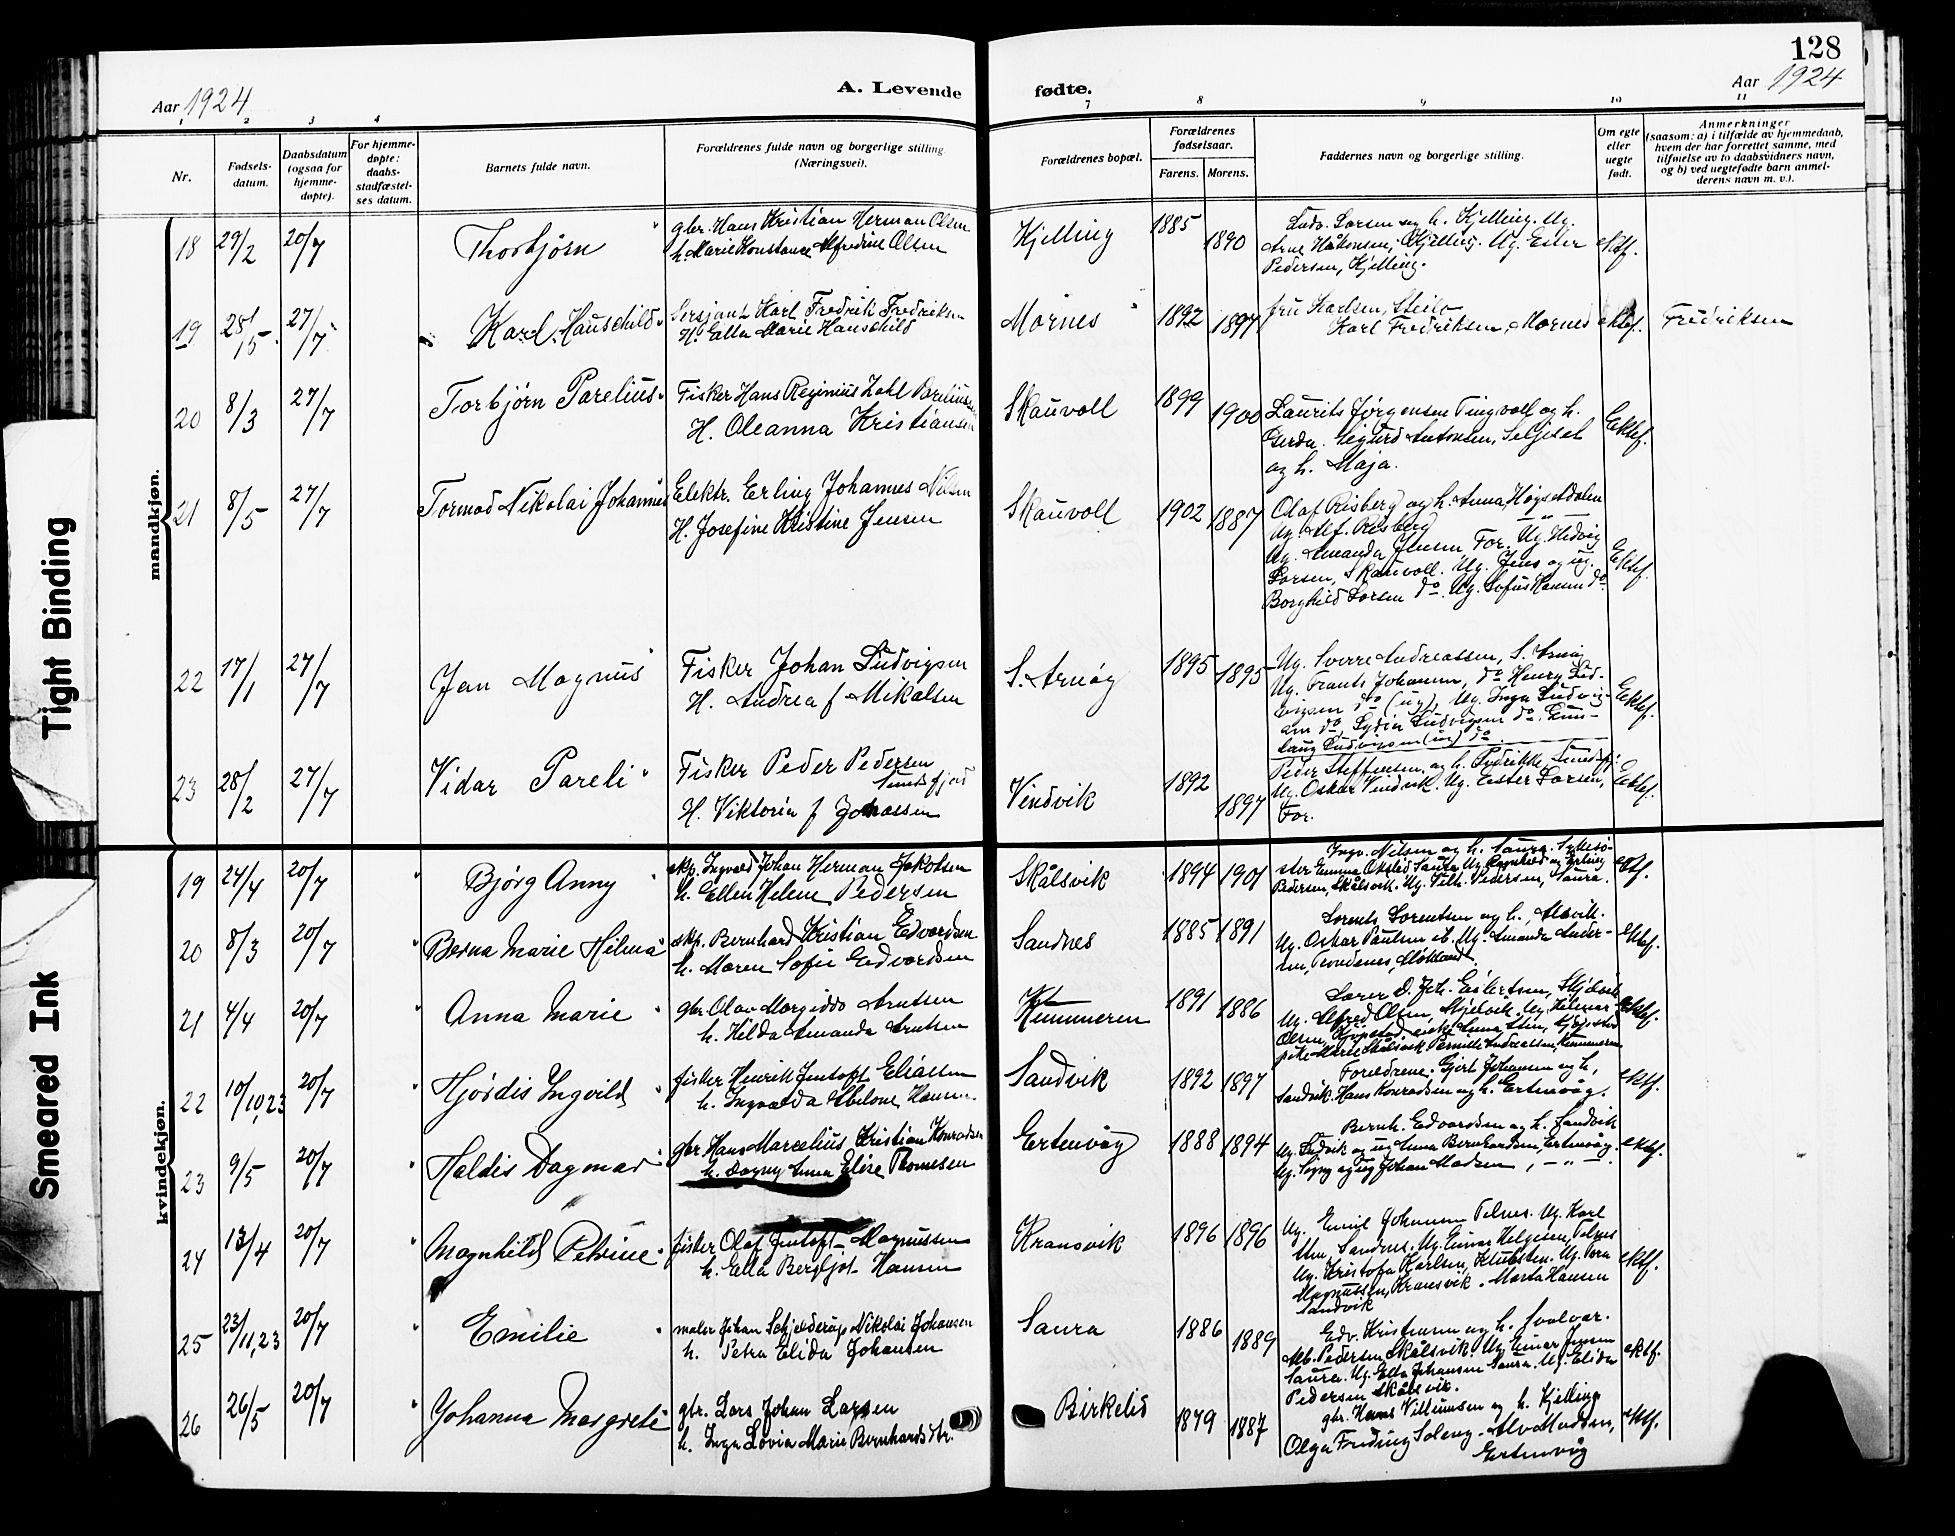 128
Aar 1924
A. Levende
fødte.
Aar 1924
1 2 3 4 7 8 9 10 11
Nr.
Fødsels-
datum.
Daabsdatum
(ogsaa for
hjemme-
døpte).
For hjemme-
døpte:
daabs-
stadfæstel-
ses datum.
Barnets fulde navn.
Forældrenes fulde navn og borgerlige stilling
(Næringsvei).
Forældrenes bopæl.
Forældrenes
fødselsaar.
Farens. Morens.
Faddernes navn og borgerlige stilling.
Om egte
eller
uegte
født.
Anmerkninger
(saasom: a) i tilfælde av hjemmedaab,
hvem der har forrettet samme, med
tilføielse av to daabsvidners navn,
og b) ved uegtefødte barn anmel-
derens navn m. v.).
mandkjøn.
18 29/2 20/7 Thorbjørn
gbr. Hans Kristian Herman Olsen
h. Marie Konstance Alfredine Olsen
Kjelling 1885 1890
Ludv. Larsen og h. Kjelling. Ug.
Arne Håkonsen, Kjelling. Ug. Ester
Pedersen, Kjelling.
ektf.
19 28/5 27/7 Karl Hauschild
Sersjant Karl Fredrik Fredriksen
H. Ella Marie Hauschild
Mørnes 1892 1897
fru Karlsen, Steilo
Karl Fredriksen, Mørnes
ektef.
Fredriksen
20 8/3 27/7 Torbjørn Parelius
Fisker Hans Reginius Zahl Pareliussen
H. Oleanna Kristiansen
Skauvoll 1899 1900
Laurits Jørgensen Tingvoll og h.
Gerda. Sigurd Antonsen, Seljeset
og h. Maja.
Ektef.
21 8/5 27/7 Tormod Nikolai Johannes
Elektr. Erling Johannes Nilsen
H. Josefine Kristine Jensen
Skauvoll 1902 1887
Olaf Risberg og h. Anna, Høgsetdalen
Ug. Alf. Risberg — " —
Ug. Amanda Jensen, For. Ug. Hedvig
Larsen, Skauvoll. Ug. Jens og ug.
Borghild Larsen do. Ug. Sofus Hansen do.
Ektef.
22 17/1 27/7 Jan Magnus
Fisker Johan Ludvigsen
H. Andrea f Mikalsen
S. Arnøy 1895 1895
Ug. Sverre Andreassen, S. Arnøy
Ug. Frants Johansen, do Henry Lud-
vigsen do (ug), Ug. Inga Ludvig-
sen do, Lydia Ludvigsen do. Gun-
laug Ludvigsen (ug) do
Ektef.
23 28/2 27/7 Vidar Pareli
Fisker Peder Pedersen
Sundsfjord
H. Viktoria f Johassen
Vindvik 1892 1897
Peder Steffensen og h. Fredrikke, Sundsfj.
Ug. Oskar Vindvik. Ug. Ester Larsen,
For.
Ektef.
kvindekjøn.
19 24/4 20/7 Bjørg Anny
skp. Ingvald Johan Herman Jakobsen
h. Ellen Helene Pedersen
Skålsvik 1894 1901
Ingv. Nilsen og h. Saura. Sykesø-
ster Emma Okstad Saura, Ug. Ragnhild og Erling
Pedersen, Skålsvik. Ug. Vilh. Pedersen, Saura.
ektf.
20 8/3 20/7 Berna Marie Hilma
skp. Bernhard Kristian Edvardsen
h. Maren Sofie Edvardsen
Sandnes 1885 1891
Lorents Lorentsen og h., Alsvik.
Ug. Oskar Paulsen ib. Ug. Amanda Ander-
sen,
ektef.
21 4/4 20/7 Anna Marie
gbr Olav Margido Arntsen
h. Hilda Amanda Arntsen
Kummeren 1891 1886
Lærer D. Joh. Eilertsen, Skjelvik
Ug. Alfred Olsen, Skjelvik. Ug. Hilmar
Olsen,
ektef.
22 10/10,23 20/7 Hjørdis Ingvild
fisker Henrik Jentoft Eliassen
h. Ingvalda Abelone Hansen
Sandvik 1892 1897
Forældrene. Gjert Johansen og h,
Sandvik. Hans Konradsen og h. Ertenvåg.
ektf.
23 9/5 20/7 Haldis Dagmar
gbr Hans Marcelius Kristian Konradsen
h. Dagny Anna Elise Thomesen
Ertenvåg 1888 1894
Bernh. Edvardsen og h. Sandvik
Ug. Ludvik og ug Anna Bernhardsen, Ertenvåg.
Ug. Signy og ug Johan Madsen, — " —
ektef.
24 13/4 20/7 Magnhild Petrine
fisker Olaf Jentoft Magnussen
h. Ella Bergljot Hansen
Kransvik 1896 1896
Ug. Emil Johansen Telnes. Ug. Karl
Sandnes. Ug. Einar Helgesen, Telnes
Ug. Kristofa Karlsen, Ug. Vera
Magnussen, Kransvik. Marta Hansen
Sandvik
ektf.
25 23/11,23 20/7 Emilie
maler Johan Schjelderup Nikolai Johansen
h. Petra Elida Johansen
Saura 1886 1889
Edv. Kristensen og h. Svolvær.
Alb. Pedersen Skålsvik. Ug. Einar Jensen
Saura. Ug. Ella Johansen Saura. Ug. Elida
Pedersen Skålsvik.
ektf.
26 26/5 20/7 Johanna Margrete
gbr. Lars Johan Larsen
h. Inga Lovia Marie Bernhardsdtr.
Birkelid 1879 1887
gbr. Hans Villumsen og h. Kjelling
Olga Alv Madsen,
Ertenvåg
ektf.
Tight Binding
Smeared Ink